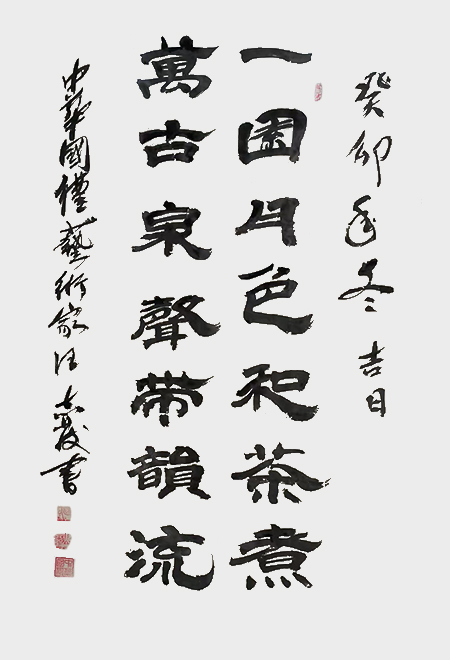 癸卯年冬吉日
一園月色和茶煮
萬古泉聲帶韻流
中華國禮藝術家汪志義書